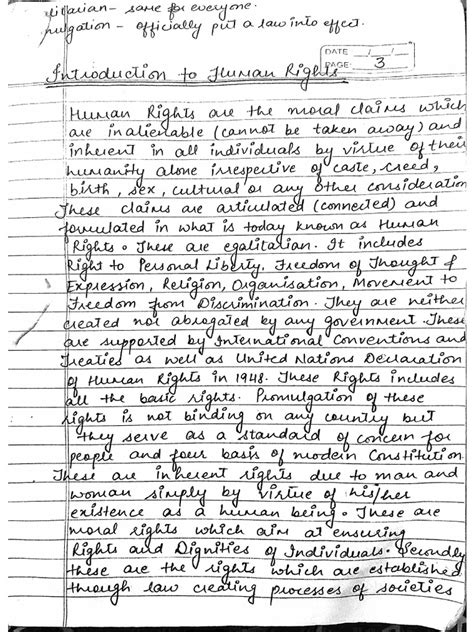 litarian - same for everyone.
mulgation - officially put a law into effect.
DATE / /
PAGE 3
Introduction to Human Rights
Human Rights are the moral claims which
are inalienable (cannot be taken away) and
inherent in all individuals by virtue of their
humanity alone irrespective of caste, creed,
birth, sex, cultural or any other consideration
These claims are articulated (connected) and
formulated in what is today known as Human
Rights. These are egalitarian. It includes
Right to Personal Liberty, Freedom of Thought &
Expression, Religion, Organisation, Movement to
Freedom from Discrimination. They are neither
created not abrogated by any government. These
are supported by International Conventions and
Treaties as well as United Nations Declaration
of Human Rights in 1948. These Rights includes
all the basic rights. Promulgation of these
rights is not binding on any country but
they serve as a standard of concern for
people and four basis of modern Constitution
These are inherent rights due to man and
woman simply by virtue of his/her
existence as a human being. These are
moral rights which aim at ensuring
Rights and Dignities of Individuals. Secondly
these are the rights which are established
through law creating processes of societies